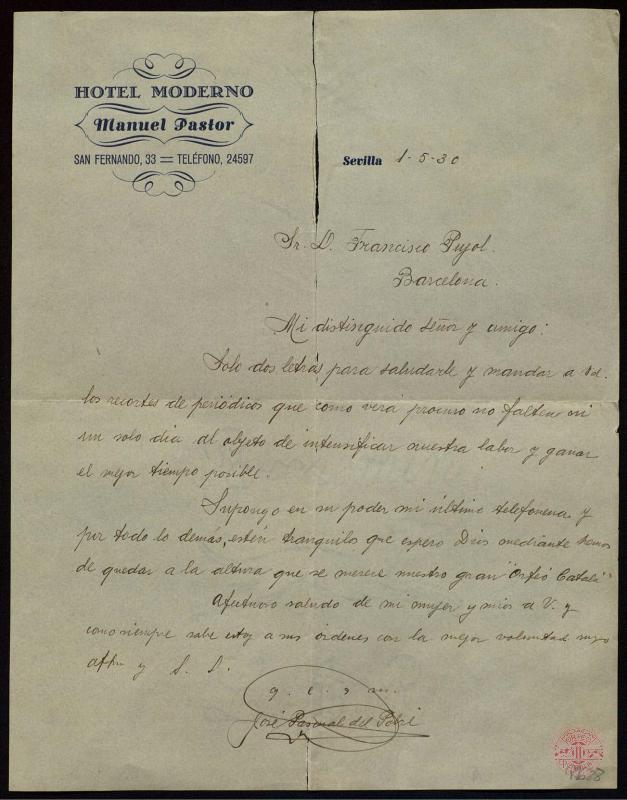 HOTEL MODERNO
Manuel Pastor
SAN FERNANDO, 33 = TELÉFONO, 24597
Sevilla 1-5-30
Sr. D. Francisco Pujol.
Barcelona.
Mi distinguido señor y amigo:
Solo dos letras para saludarle y mandar a Vd.
los recortes de periódicos que como verá procuro no falten ni
un solo dia al objeto de intensificar nuestra labor y ganar
el mejor tiempo posible.
Supongo en su poder mi último telefonema y
por todo lo demás, estén tranquilos que espero Dios mediante hemos
de quedar a la altura que se merece nuestro gran "Orfeó Catalá"
Afectuoso saludo de mi mujer y mios a V. y
como siempre sabe estoy a sus órdenes con la mejor voluntad suyo
affm y S. S.
q. e. s. m.
José Pascual del